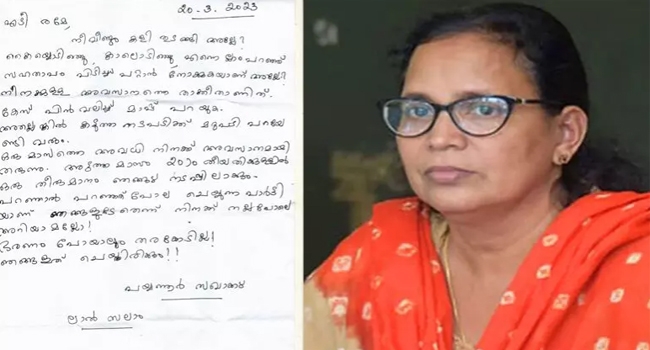 20-3-2023
എടീ രമേ,
നീ വീണ്ടും കളി തുടങ്ങി അല്ലേ?
കൈയ്യൊടിഞ്ഞു, കാലൊടിഞ്ഞു എന്നൊക്കെ പറഞ്ഞ്
സഹതാപം പിടിച്ചു പറ്റാൻ നോക്കുകയാണ് അല്ലേ?
നിനക്കുള്ള അവസാനത്തെ താക്കീതാണിത്.
കേസ് പിൻവലിച്ച് മാപ്പ് പറയുക.
അല്ലെങ്കിൽ കടുത്ത നടപടിക്ക് മറുപടി പറയേ
ണ്ടി വരും.
ഒരു മാസത്തെ അവധി നിനക്ക് അവസാനമായി
തരുന്നു. അടുത്ത മാസം 20ാം തീയതിക്കുള്ളിൽ
ഒരു തീരുമാനം ഞങ്ങള് നടപ്പിലാക്കും.
പറഞ്ഞാൽ പറഞ്ഞത് പോലെ ചെയ്യുന്ന പാർട്ടി
യാണ് ഞങ്ങളുടേതെന്ന് നിനക്ക് നല്ലപോലെ
അറിയാമല്ലോ!
ഭരണം പോയാലും തരക്കേടില്ല!
ഞങ്ങളത് ചെയ്തിരിക്കും!!
പയ്യന്നൂർ സഖാക്കൾ
ലാൽ സലാം